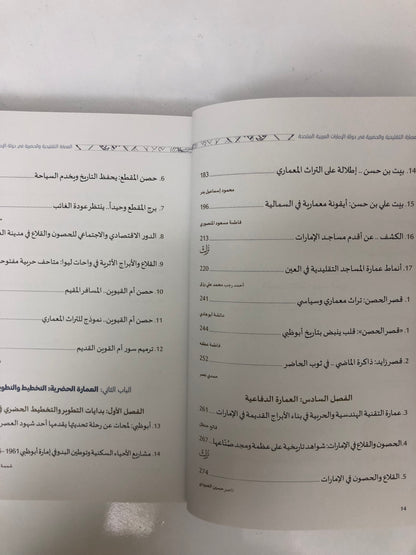 العمارة التقليدية والحضرية في دولة الإمارات العربية المتحدة
14. بيت بن حسن .. إطلالة على التراث المعماري 183
محمود إسماعيل بدر
15. بيت علي بن حسن: أيقونة معمارية في السمالية 196
فاطمة مسعود المنصوري
16. الكشف .. عن أقدم مساجد الإمارات 213
تراث
17. أنماط عمارة المساجد التقليدية في العين 220
أحمد رجب محمد علي رزق
1. قصر الحصن: تراث معماري وسياسي 241
2. «قصر الحصن»: قلب ينبض بتاريخ أبوظبي 244
فاطمة عطفة
2. قصر زايد: ذاكرة الماضي .. في ثوب الحاضر 252
حمدي نصر
الفصل السادس: العمارة الدفاعية
3. عمارة التقنية الهندسية والحربية في بناء الأبراج القديمة في الإمارات 261
4. الحصون والقلاع في الإمارات: شواهد تاريخية على عظمة ومجد صنّاعها 267
تراث
5. القلاع والحصون في الإمارات 274
14
العمارة التقليدية والحضرية في دولة
6. حصن المقطع: يحفظ التاريخ ويخدم السياحة
7. برج المقطع وحيداً.. ينتظر عودة الغائب
8. الدور الاقتصادي والاجتماعي للحصون والقلاع في مدينة
9. القلاع والأبراج الأثرية في واحات ليوا: متاحف حربية مفتوحة
10. حصن أم القيوين.. المسافر المقيم
11. حصن أم القيوين.. نموذج للتراث المعماري
12. ترميم سور أم القوين القديم
الباب الثاني: العمارة الحضرية: التخطيط
الفصل الأول: بدايات التطوير والتخطيط الحضري في
13. أبوظبي: لمحات عن رحلة تحديثها يقدمها أحد شهود العصر
14. مشاريع الأحياء السكنية وتوطين البدو في إمارة أبوظبي 1961